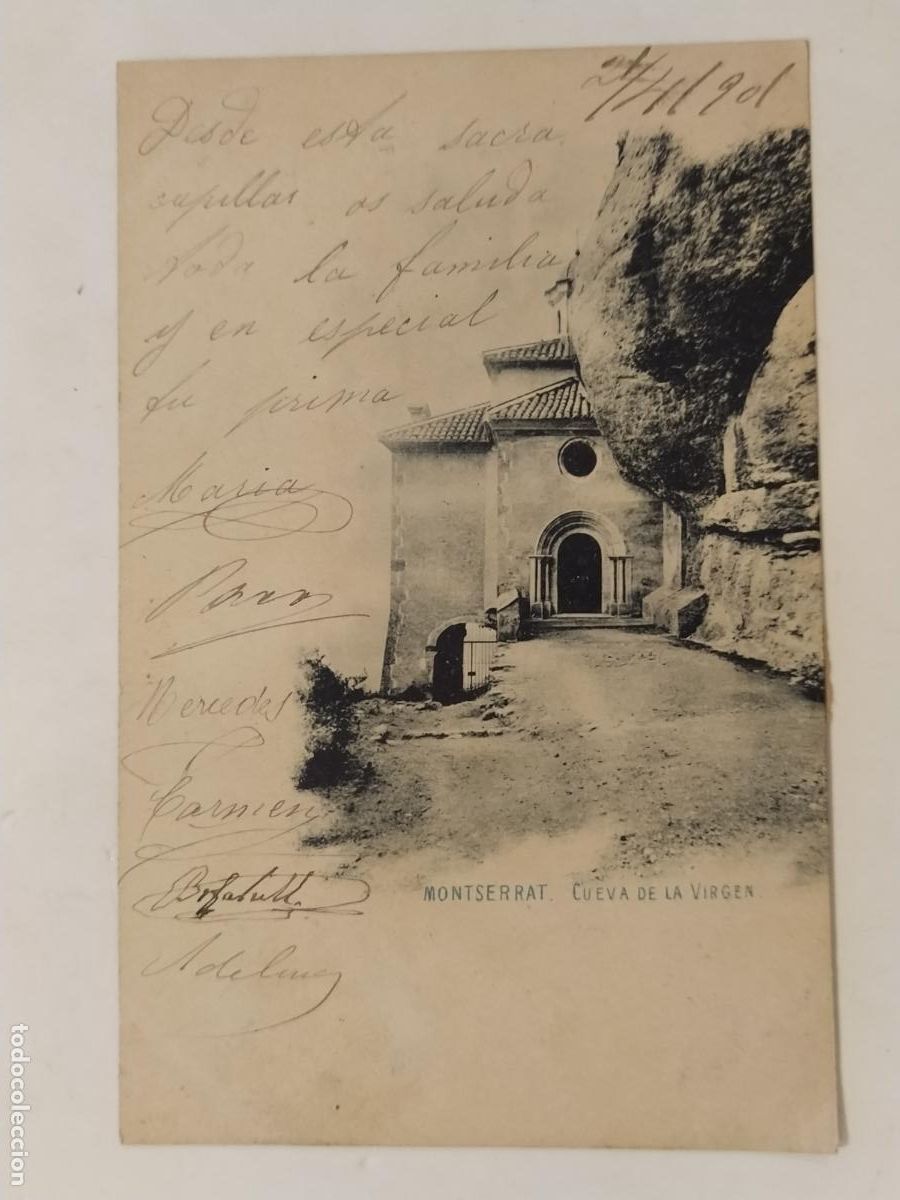 Desde esta sacra
capilla os saluda
toda la familia
y en especial
tu prima
Maria
Mercedes
Carmen
MONTSERRAT. CUEVA DE LA VIRGEN.
todocoleccion